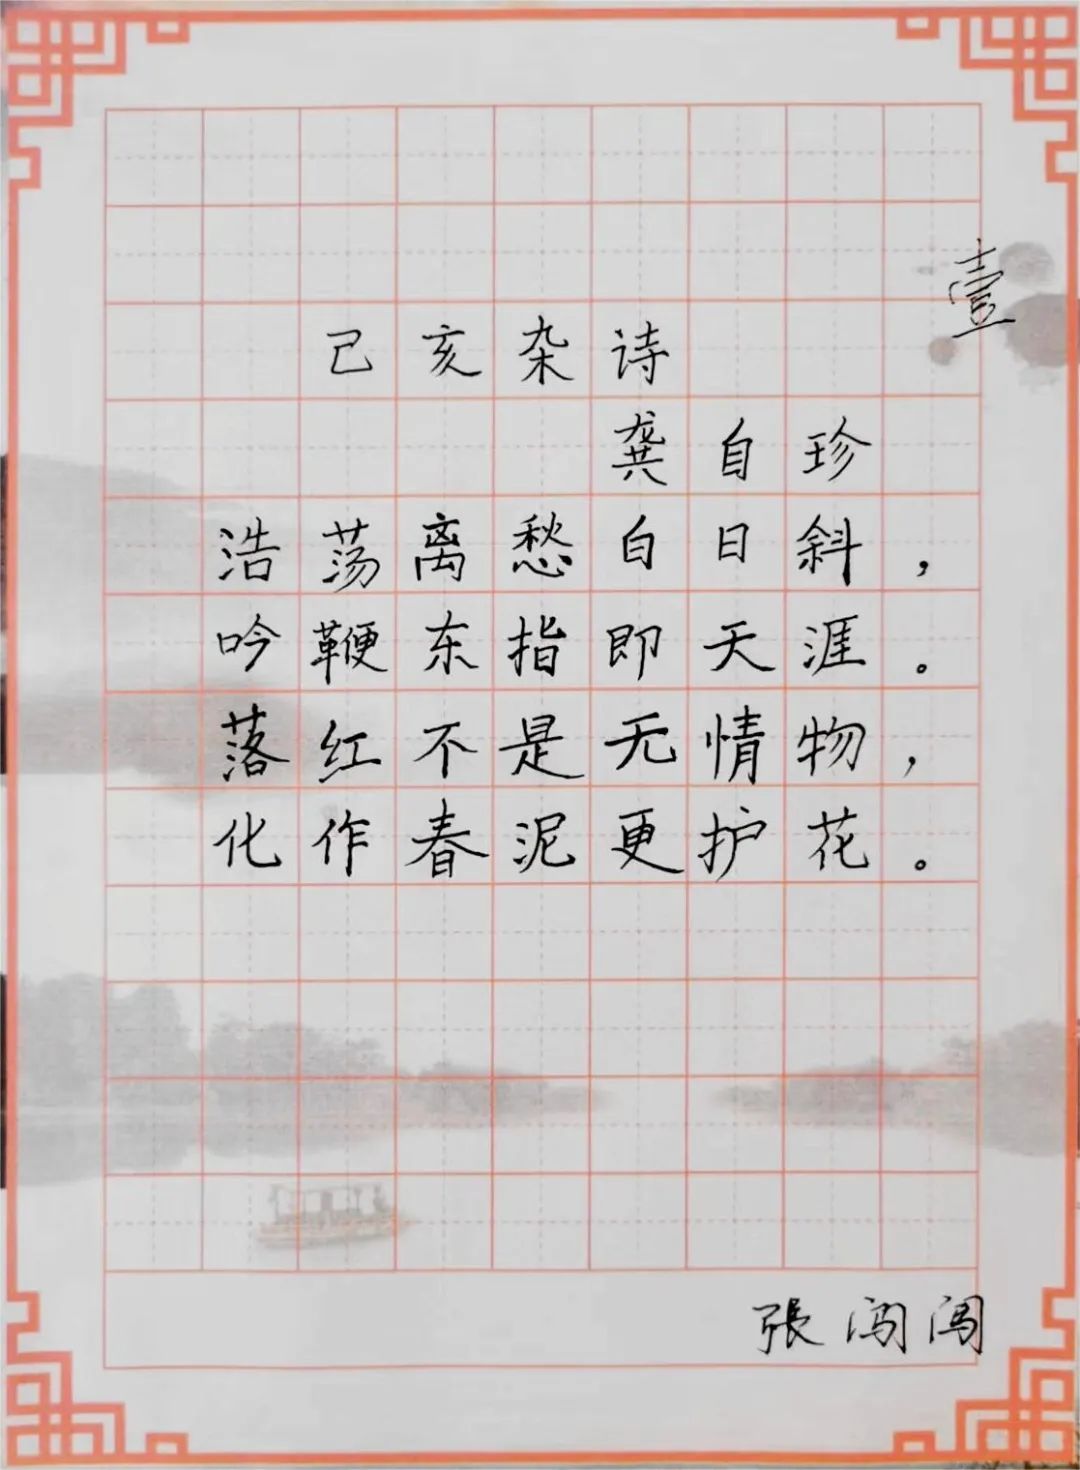 壹
己亥杂诗
龚自珍
浩荡离愁白日斜，
吟鞭东指即天涯。
落红不是无情物，
化作春泥更护花。
張闯闯